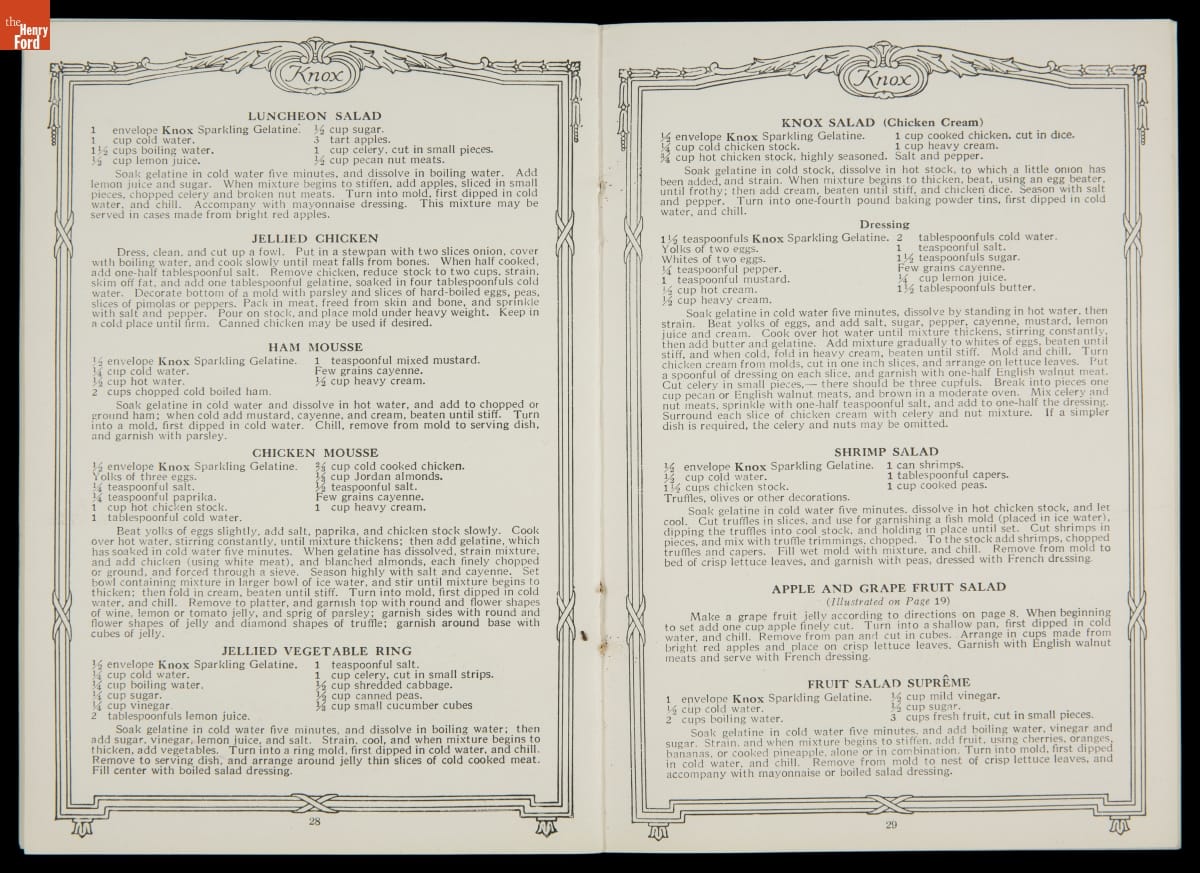 the
Henry
Ford
Knox
LUNCHEON SALAD
1 envelope Knox Sparkling Gelatine. ½ cup sugar.
1 cup cold water. 3 tart apples.
1½ cups boiling water. 1 cup celery, cut in small pieces.
½ cup lemon juice. ½ cup pecan nut meats.
Soak gelatine in cold water five minutes, and dissolve in boiling water. Add
lemon juice and sugar. When mixture begins to stiffen, add apples, sliced in small
pieces, chopped celery and broken nut meats. Turn into mold, first dipped in cold
water, and chill. Accompany with mayonnaise dressing. This mixture may be
served in cases made from bright red apples.
JELLIED CHICKEN
Dress, clean, and cut up a fowl. Put in a stewpan with two slices onion, cover
with boiling water, and cook slowly until meat falls from bones. When half cooked,
add one-half tablespoonful salt. Remove chicken, reduce stock to two cups, strain,
skim off fat, and add one tablespoonful gelatine, soaked in four tablespoonfuls cold
water. Decorate bottom of a mold with parsley and slices of hard-boiled eggs, peas,
slices of pimolas or peppers. Pack in meat, freed from skin and bone, and sprinkle
with salt and pepper. Pour on stock, and place mold under heavy weight. Keep in
a cold place until firm. Canned chicken may be used if desired.
HAM MOUSSE
½ envelope Knox Sparkling Gelatine. 1 teaspoonful mixed mustard.
¼ cup cold water. Few grains cayenne.
½ cup hot water. ½ cup heavy cream.
2 cups chopped cold boiled ham.
Soak gelatine in cold water and dissolve in hot water, and add to chopped or
ground ham; when cold add mustard, cayenne, and cream, beaten until stiff. Turn
into a mold, first dipped in cold water. Chill, remove from mold to serving dish,
and garnish with parsley.
CHICKEN MOUSSE
½ envelope Knox Sparkling Gelatine. ⅔ cup cold cooked chicken.
Yolks of three eggs. cup Jordan almonds.
teaspoonful salt. ½ teaspoonful salt.
¼ teaspoonful paprika. Few grains cayenne.
1 cup hot chicken stock. 1 cup heavy cream.
1 tablespoonful cold water.
Beat yolks of eggs slightly, add salt, paprika, and chicken stock slowly. Cook
over hot water, stirring constantly, until mixture thickens; then add gelatine, which
has soaked in cold water five minutes. When gelatine has dissolved, strain mixture,
and add chicken (using white meat), and blanched almonds, each finely chopped
or ground, and forced through a sieve. Season highly with salt and cayenne. Set
bowl containing mixture in larger bowl of ice water, and stir until mixture begins to
thicken; then fold in cream, beaten until stiff. Turn into mold, first dipped in cold
water, and chill. Remove to platter, and garnish top with round and flower shapes
of wine, lemon or tomato jelly, and sprig of parsley; garnish sides with round and
flower shapes of jelly and diamond shapes of truffle; garnish around base with
cubes of jelly.
JELLIED VEGETABLE RING
½ envelope Knox Sparkling Gelatine. 1 teaspoonful salt.
¼ cup cold water. 1 cup celery, cut in small strips.
cup boiling water. ½ cup shredded cabbage.
¼ cup sugar. cup canned peas.
¼ cup vinegar. cup small cucumber cubes
2 tablespoonfuls lemon juice.
Soak gelatine in cold water five minutes, and dissolve in boiling water; then
add sugar, vinegar, lemon juice, and salt. Strain, cool, and when mixture begins to
thicken, add vegetables. Turn into a ring mold, first dipped in cold water, and chill.
Remove to serving dish, and arrange around jelly thin slices of cold cooked meat.
Fill center with boiled salad dressing.
28
Knox
KNOX SALAD (Chicken Cream)
½ envelope Knox Sparkling Gelatine. 1 cup cooked chicken, cut in dice.
¼ cup cold chicken stock. 1 cup heavy cream.
¾ cup hot chicken stock, highly seasoned. Salt and pepper.
Soak gelatine in cold stock, dissolve in hot stock, to which a little onion has
been added, and strain. When mixture begins to thicken, beat, using an egg beater,
until frothy; then add cream, beaten until stiff, and chicken dice. Season with salt
and pepper. Turn into one-fourth pound baking powder tins, first dipped in cold
water, and chill.
Dressing
1½ teaspoonfuls Knox Sparkling Gelatine. 2 tablespoonfuls cold water.
Yolks of two eggs. 1 teaspoonful salt.
Whites of two eggs. 1½ teaspoonfuls sugar.
¼ teaspoonful pepper. Few grains cayenne.
1 teaspoonful mustard. ¼ cup lemon juice.
½ cup hot cream. 1½ tablespoonfuls butter.
½ cup heavy cream.
Soak gelatine in cold water five minutes, dissolve by standing in hot water, then
strain. Beat yolks of eggs, and add salt, sugar, pepper, cayenne, mustard, lemon
juice and cream. Cook over hot water until mixture thickens, stirring constantly,
then add butter and gelatine. Add mixture gradually to whites of eggs, beaten until
stiff, and when cold, fold in heavy cream, beaten until stiff. Mold and chill. Turn
chicken cream from molds, cut in one inch slices, and arrange on lettuce leaves. Put
a spoonful of dressing on each slice, and garnish with one-half English walnut meat.
Cut celery in small pieces,— there should be three cupfuls. Break into pieces one
cup pecan or English walnut meats, and brown in a moderate oven. Mix celery and
nut meats, sprinkle with one-half teaspoonful salt, and add to one-half the dressing.
Surround each slice of chicken cream with celery and nut mixture. If a simpler
dish is required, the celery and nuts may be omitted.
SHRIMP SALAD
½ envelope Knox Sparkling Gelatine. 1 can shrimps.
½ cup cold water. 1 tablespoonful capers.
1½ cups chicken stock. 1 cup cooked peas.
Truffles, olives or other decorations.
Soak gelatine in cold water five minutes, dissolve in hot chicken stock, and let
cool. Cut truffles in slices, and use for garnishing a fish mold (placed in ice water),
dipping the truffles into cool stock, and holding in place until set. Cut shrimps in
pieces, and mix with truffle trimmings, chopped. To the stock add shrimps, chopped
truffles and capers. Fill wet mold with mixture, and chill. Remove from mold to
bed of crisp lettuce leaves, and garnish with peas, dressed with French dressing.
APPLE AND GRAPE FRUIT SALAD
(Illustrated on Page 19)
Make a grape fruit jelly according to directions on page 8. When beginning
to set add one cup apple finely cut. Turn into a shallow pan, first dipped in cold
water, and chill. Remove from pan and cut in cubes. Arrange in cups made from
bright red apples and place on crisp lettuce leaves. Garnish with English walnut
meats and serve with French dressing.
FRUIT SALAD SUPRÊME
1 envelope Knox Sparkling Gelatine. ½ cup mild vinegar.
½ cup cold water. ½ cup sugar.
2 cups boiling water. 3 cups fresh fruit, cut in small pieces.
Soak gelatine in cold water five minutes, and add boiling water, vinegar and
sugar. Strain, and when mixture begins to stiffen, add fruit, using cherries, oranges,
bananas, or cooked pineapple, alone or in combination. Turn into mold, first dipped
in cold water, and chill. Remove from mold to nest of crisp lettuce leaves, and
accompany with mayonnaise or boiled salad dressing.
29